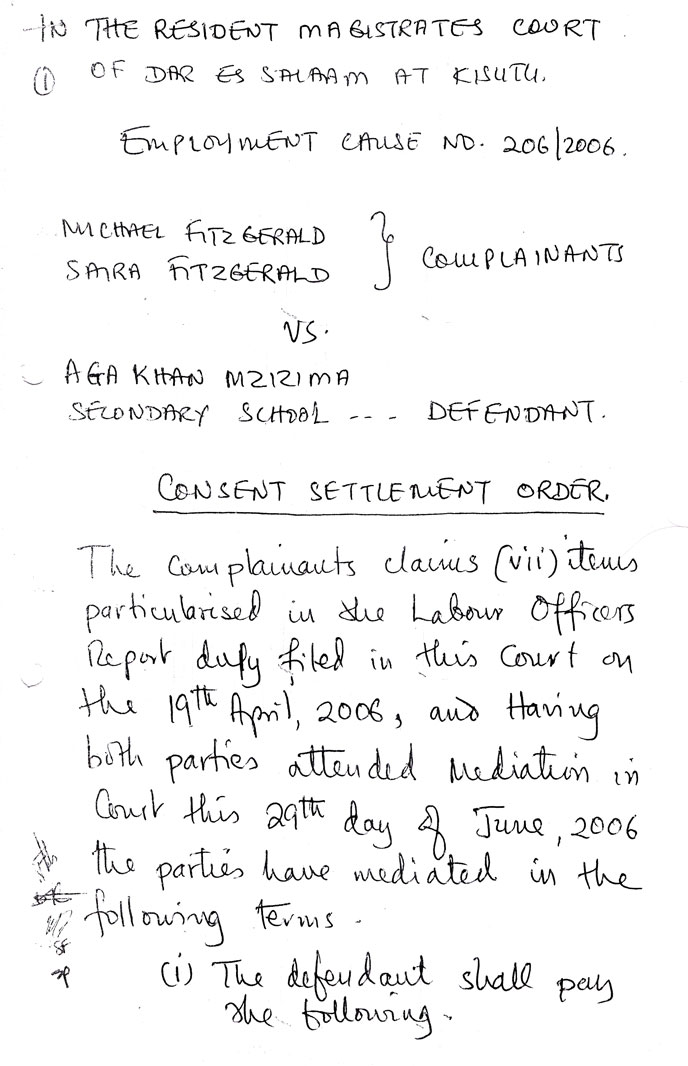 IN THE RESIDENT MAGISTRATES COURT
① OF DAR ES SALAAM AT KISUTU.
EMPLOYMENT CAUSE NO. 206/2006.
MICHAEL FITZGERALD
SAIRA FITZGERALD } COMPLAINANTS
VS.
AGA KHAN MZIZIMA
SECONDARY SCHOOL --- DEFENDANT.
CONSENT SETTLEMENT ORDER.
The complainants claims (vii) items
particularised in the Labour Officers
Report duly filed in this Court on
the 19th April, 2006, and Having
both parties attended Mediation in
Court this 29th day of June, 2006
the parties have mediated in the
following terms.
(i) The defendant shall pay
the following.